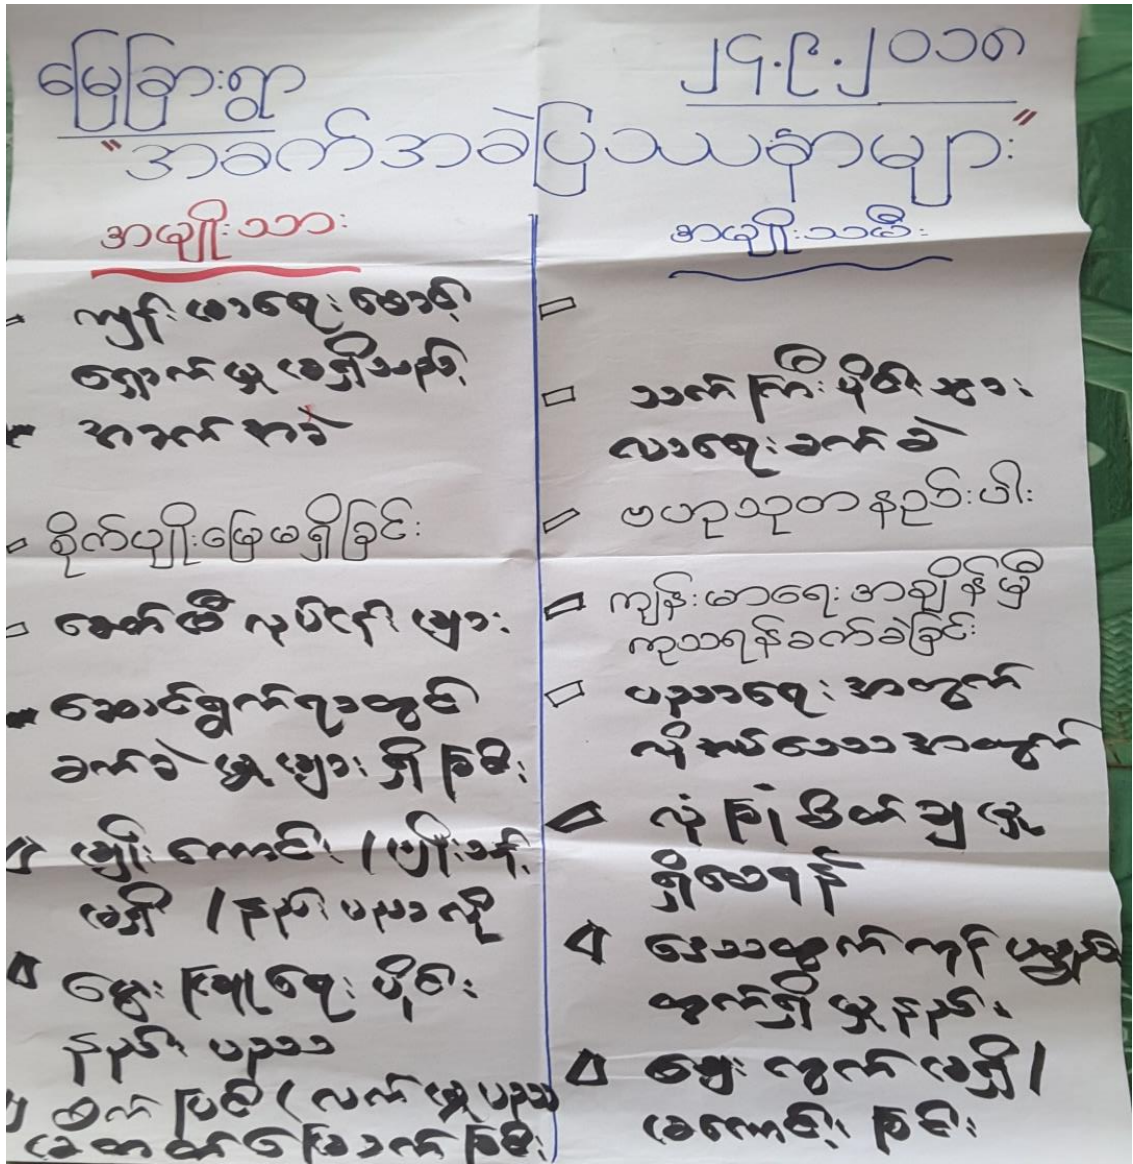 မြေခြားရွာ
၂၄.၉.၂၀၁၈
"အခက်အခဲပြဿနာများ"
အမျိုးသား
ကျန်းမာရေး စောင့်
ရှောက်မှု မရှိသည့်
အခက်အခဲ
စိုက်ပျိုးမြေမရှိခြင်း
ခေတ်မီ လုပ်ငန်းများ
ဆောင်ရွက်ရာတွင်
ခက်ခဲမှုများ ရှိခြင်း
မျိုးကောင်း / မျိုးသန့်
မရှိ / နည်းပညာလို
မွေးမြူရေးပိုင်း
နည်းပညာ
ထွက်ပြင် ( လက်မှုပညာ
မတတ်မြောက်ခြင်း
အမျိုးသမီး
သက်ကြီးပိုင်းသွား
လာရေးခက်ခဲ
ဗဟုသုတနည်းပါး
ကျန်းမာရေးအချိန်မှီ
ကုသရန်ခက်ခဲခြင်း
ပညာရေးအတွက်
လိုအပ်သောအတွက်
လုံခြုံစိတ်ချမှု
ရှိစေရန်
ဒေသထွက်ကုန်ပစ္စည်း
ထွက်ရှိမှုနည်း
ဈေးကွက်မရှိ /
မကောင်းခြင်း